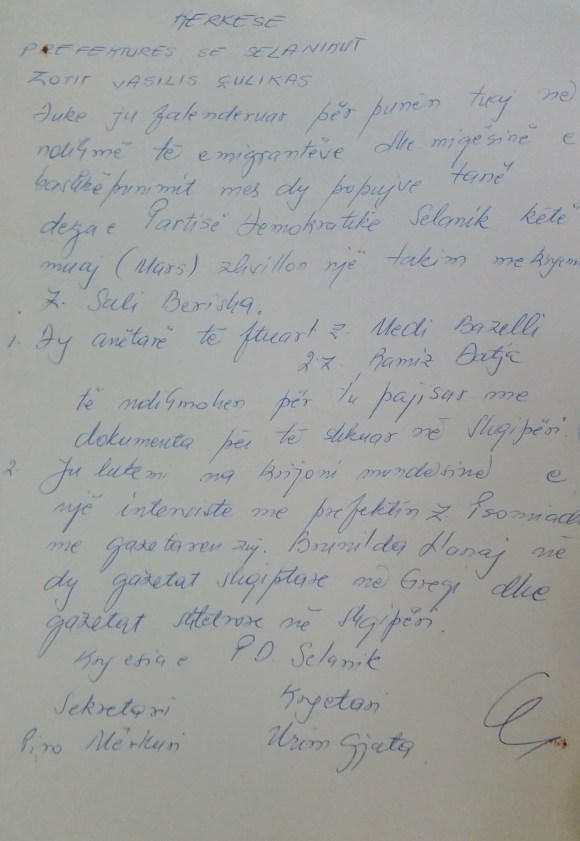 KERKESE
PREFEKTURES SE SELANIKUT
ZOTIT VASILIS GULIKAS
Duke ju falenderuar për punën tuaj në
ndihmë të emigrantëve dhe miqësinë e
bashkëpunimit mes dy popujve tanë
dega e Partisë Demokratike Selanik këtë
muaj (Mars) zhvillon një takim me kryemi
Z. Sali Berisha.
1. Dy anëtarë të ftuar 1 z. Medi Bazelli
2 z. Ramiz Datja
të ndihmohen për tu pajisur me
dokumenta për të shkuar në Shqipëri.
2. Ju lutemi na krijoni mundësinë e
një interviste me prefektin z Psomiadh
me gazetaren znj. Brunilda Hanaj në
dy gazetat shqiptare në Greqi dhe
gazetat shtetrore në Shqipëri.
Kryesia e P D. Selanik
Sekretari Kryetari
Piro Mërkuri Urim Gjata.